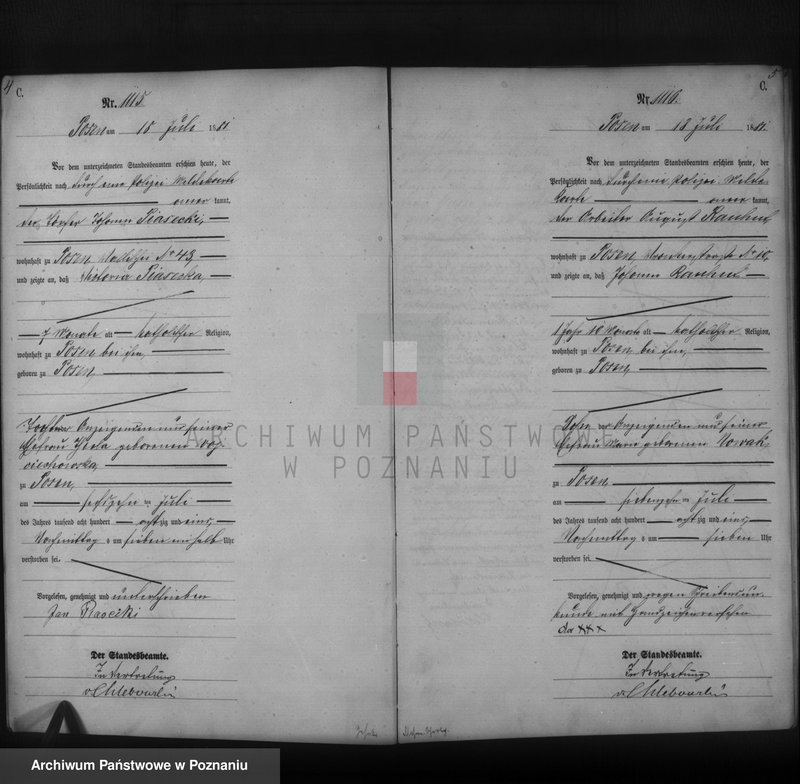 4
C.
Nr. 1115.
Posen am 18 Juli 1881
Vor dem unterzeichneten Standesbeamten erschien heute, der
Persönlichkeit nach durch eine Polizei Meldekarte
kannt,
der Johann Piasecki,
wohnhaft zu Posen No 43
und zeigte an, daß Victoria Piasecka,
7 Monate alt katholischer Religion,
wohnhaft zu Posen bei ihm,
geboren zu Posen,
Tochter Anzeigenden und seiner
Ehefrau geborenen
zu Posen,
am sechszehn ten Juli
des Jahres tausend acht hundert achtzig und eins,
Nachmittag s um sieben ein halb Uhr
verstorben sei.
Vorgelesen, genehmigt und unterschrieben
Jan Piasecki
Der Standesbeamte.
In Vertretung
5
C.
Nr. 1116.
Posen am 18 Juli 1881.
Vor dem unterzeichneten Standesbeamten erschien heute, der
Persönlichkeit nach durch eine Polizei Melde
karte kannt,
der Arbeiter August
wohnhaft zu Posen, No 10,
und zeigte an, daß Johann
1 Jahr 10 Monate alt katholischer Religion,
wohnhaft zu Posen bei ihm,
geboren zu Posen,
Sohn der Anzeigenden und seiner
Ehefrau Maria geborenen Nowak
zu Posen
am siebzehn ten Juli
des Jahres tausend acht hundert achtzig und eins,
Nachmittag s um sieben Uhr
verstorben sei.
Vorgelesen, genehmigt und wegen Schreibensun-
kunde mit Handzeichen versehen
xxx
Der Standesbeamte.
In Vertretung
ARCHIWUM PAŃSTWOWE
W POZNANIU
Archiwum Państwowe w Poznaniu